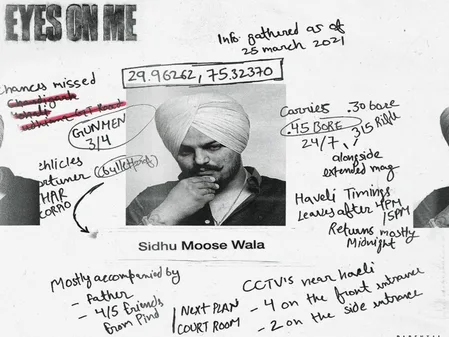 EYES ON ME
Info gathered as of
25 march 2021
29.96262, 75.32370
chances missed
Chandigarh
GUNMEN
3/4
Carries .30 bore
.45 BORE
315 Rifle
24/7
alongside
extended mag
ehlicles
ortuner (bulletproof)
HAR
Haveli Timings
Leaves after 4PM
/5PM
Returns mostly
Midnight
Sidhu Moose Wala
Mostly accompanied by
- Father
- 4/5 friends
from Pind
NEXT PLAN
COURT ROOM
CCTV's near haveli
- 4 on the front entrance
- 2 on the side entrance